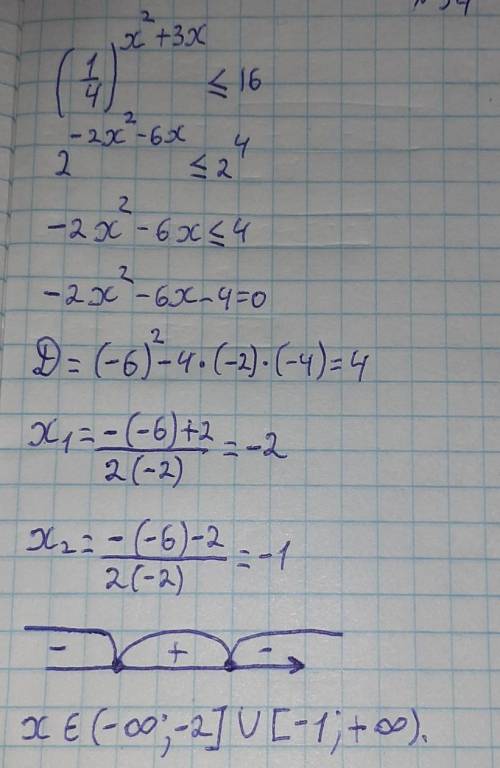 (1/4)^(x²+3x) ≤ 16
2^(-2x²-6x) ≤ 2⁴
-2x²-6x ≤ 4
-2x²-6x-4=0
D = (-6)²-4·(-2)·(-4)=4
x₁ = (-(-6)+2)/(2(-2)) = -2
x₂ = (-(-6)-2)/(2(-2)) = -1
- + -
x ∈ (-∞; -2] ∪ [-1; +∞).